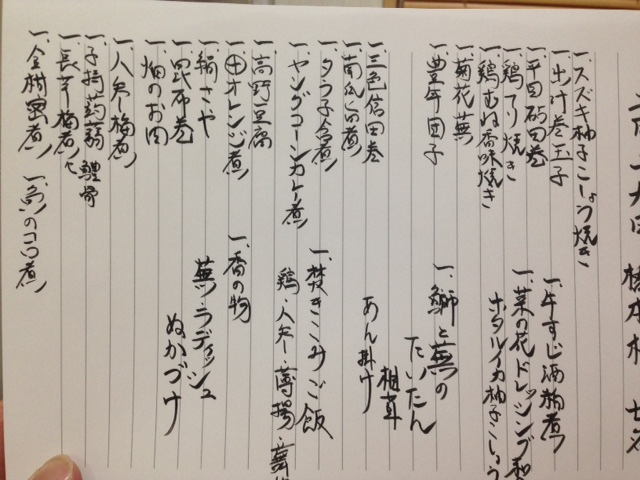 一、スズキ柚子こしょう焼き
一、出汁巻玉子
一、平田砧田巻
一、鶏てり焼き
一、鶏むね香味焼き
一、菊花蕪
一、豊年団子
一、三色信田巻
一、南瓜旨煮
一、タラ子含煮
一、ヤングコーンカレー煮
一、高野豆腐
一、オレンジ煮
一、絹さや
一、昆布巻
一、畑のお肉
一、人参梅煮
一、子持蒟蒻
一、長芋梅煮
一、金柑蜜煮
一、牛すじ酒粕煮
一、菜の花ドレッシング和
ホタルイカ柚子こしょう
一、鰤と蕪の
たいたん
椎茸
あん掛け
一、焚きこみご飯
鶏・人参・薄揚・
一、香の物
蕪・ラディッシュ
ぬかづけ
一、魚のココロ煮